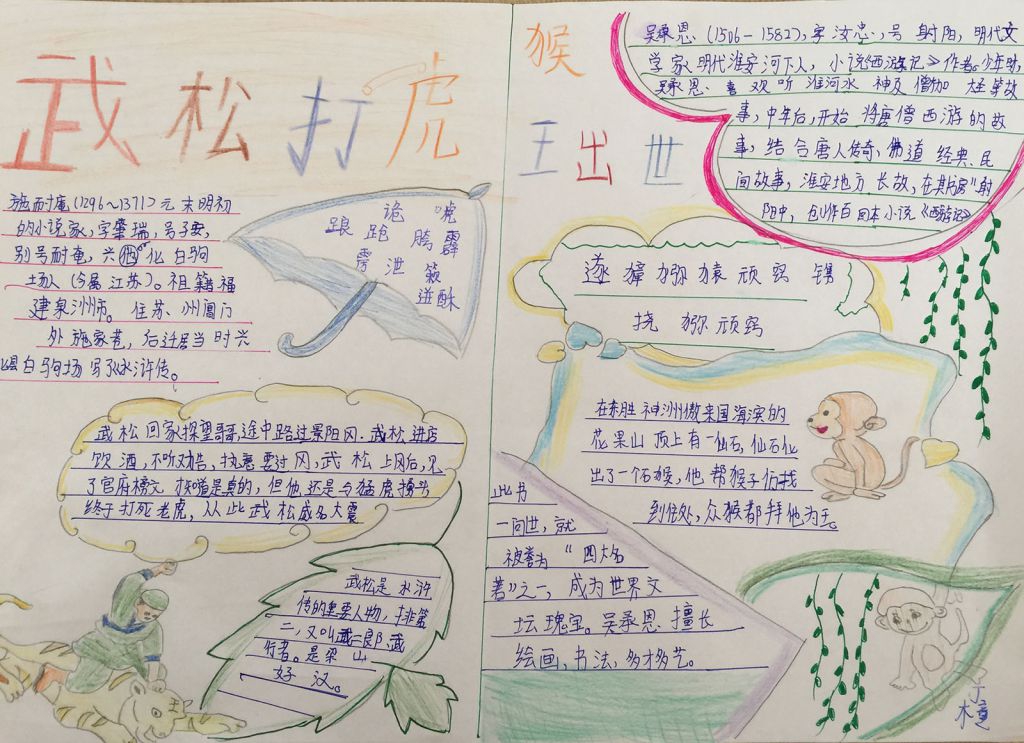 武松打虎
施耐庵(1296~1371)元末明初
的小说家,字肇瑞,号子安,
别号耐庵,兴化白驹
场人(今属江苏)。祖籍福
建泉洲市。住苏、州阊门
外施家巷,后迁居当时兴
化县白驹场写了《水浒传。
诡 唬
踉跄 胯霹
雳泄簌
迸酥
武松回家探望哥哥,途中路过景阳冈.武松进店
饮酒,不听劝告,执意要过冈,武松上冈后,见
了官府榜文 才知道是真的,但他还是与猛虎搏斗
终于打死老虎,从此武松威名大震
武松是水浒
传的重要人物,排第
二,又叫武二郎、武
行者。是梁山
好汉。
猴
王出世
吴承恩(1506-1582),字汝忠,号射阳,明代文
学家,明代淮安河下人,小说《西游记》作者。少年时,
吴承恩.喜欢听淮河水神及僧伽大圣等故
事,中年后,开始将唐僧西游的故
事,结合唐人传奇、佛道经典、民
间故事,淮安地方长故,在其 "射
阳中,创作百回本小说《西游记》
遂獐猕猿顽窍镌
挠猕顽窍
在东胜神洲傲来国海滨的
花果山顶上有一仙石,仙石化
出了一个石猴,他帮猴子们找
到住处,众猴都拜他为王。
此书
一问世,就
被誉为"四大名
著"之一,成为世界文
坛瑰宝。吴承恩.擅长
绘画,书法,多才多艺。